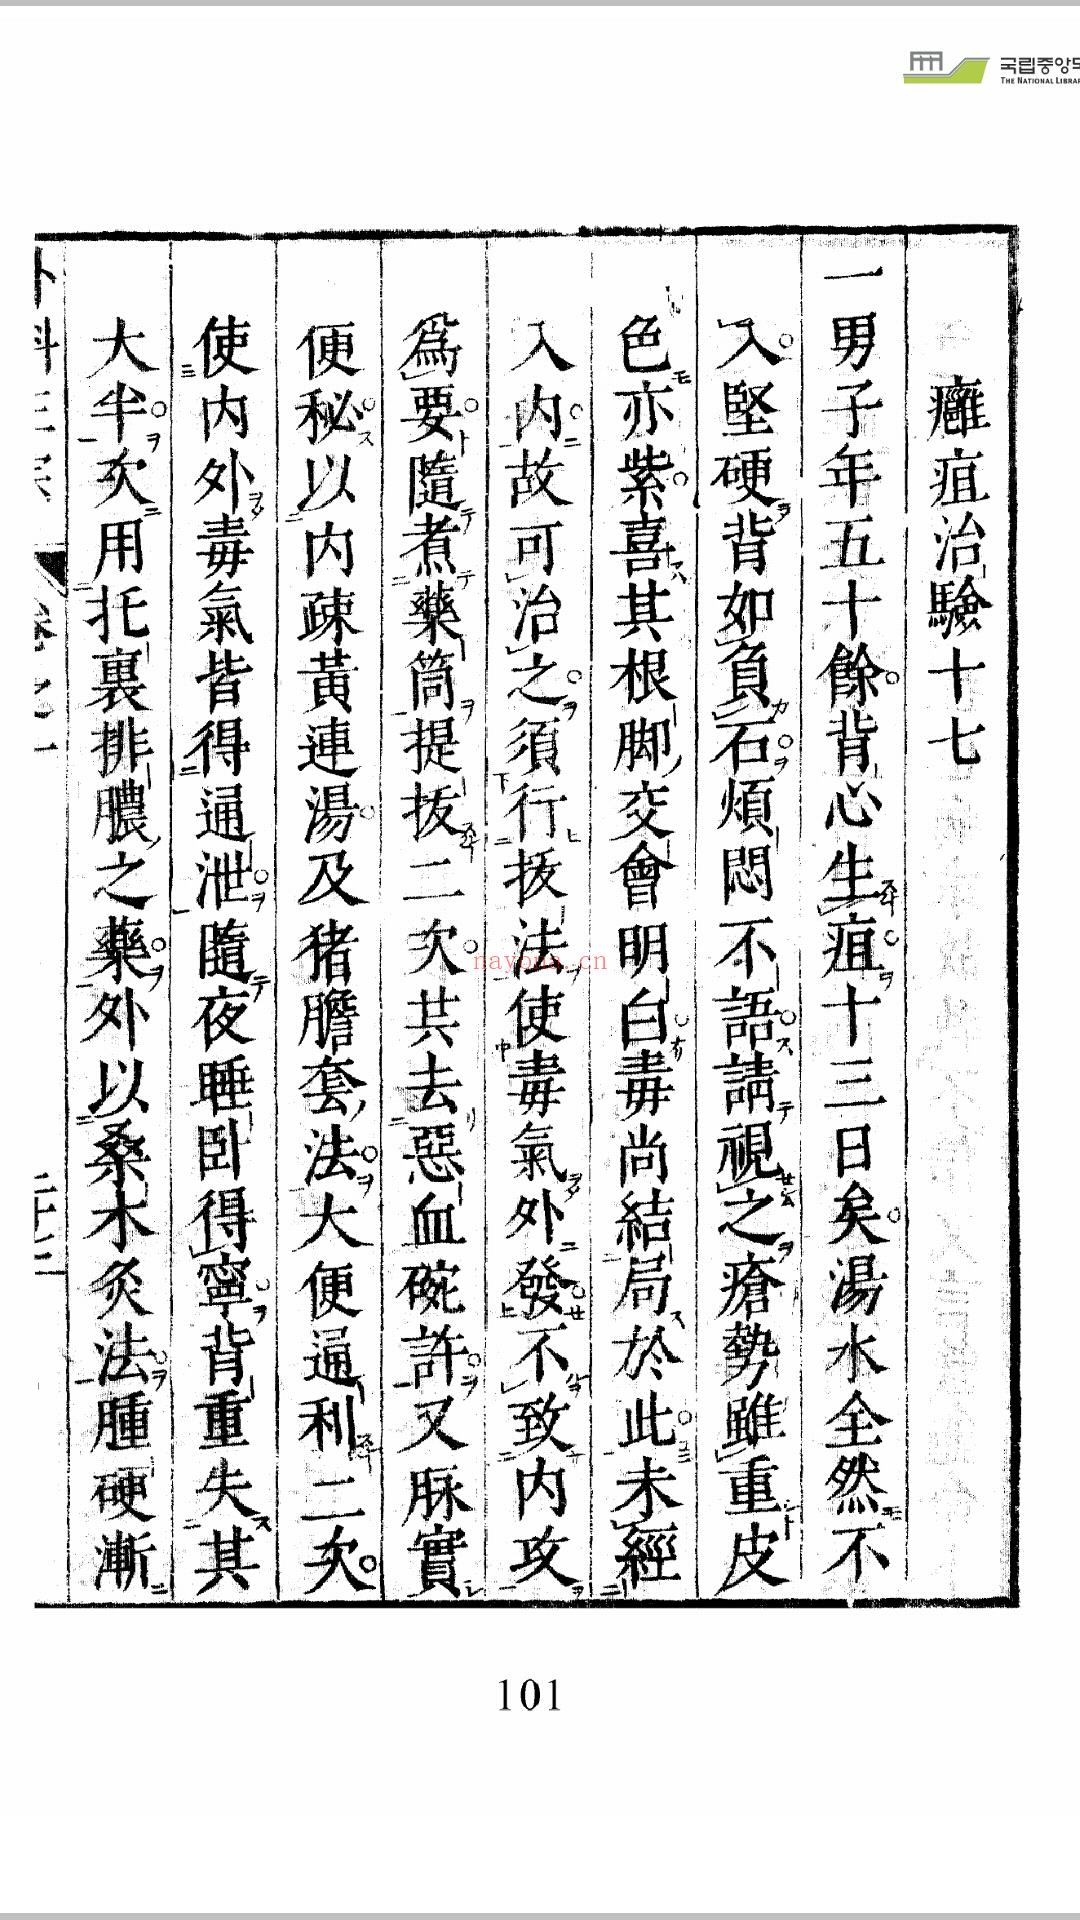 국립중앙도
THE NATIONAL LIBRA
癰疽治驗十七
一男子年五十餘背心生疽十三日矣湯水全然不
入堅硬背如負石煩悶不語請視之瘡勢雖重皮
色亦紫喜其根脚交會明白毒尚結局於此未經
入內故可治之須行拔法使毒氣外發不致內攻
爲要隨煮藥筒提拔二次共去惡血碗許又脉實
便秘以内疎黃連湯及猪膽套法大便通利二次
使内外毒氣皆得通泄隨夜睡卧得寧背重失其
大半次用托裏排膿之藥外以桑木灸法腫硬漸
外科正宗 卷之一
nayona.cn
101